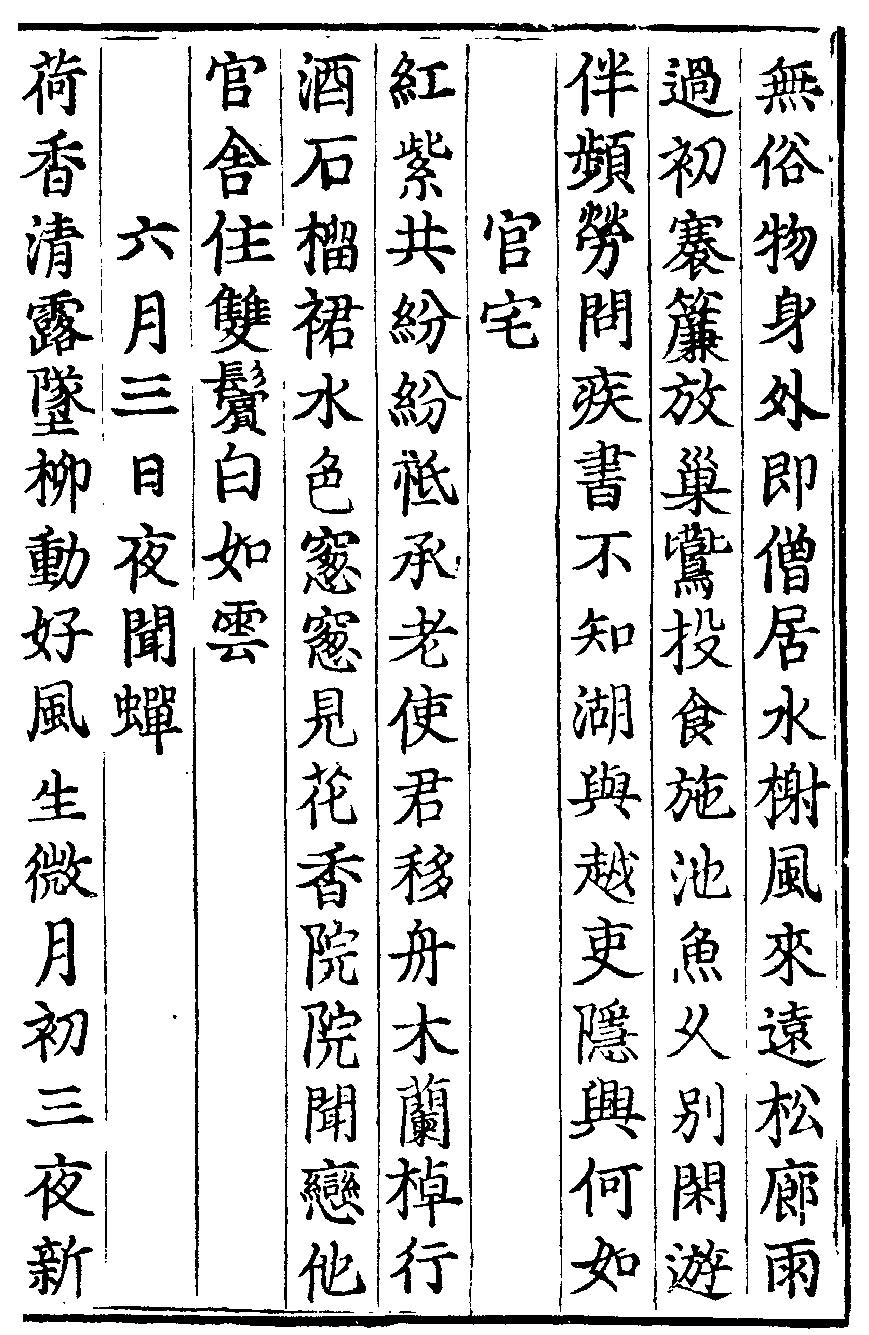 無俗物身外即僧居水榭風來遠松廊雨
過初褰簾放巢鷰投食施池魚久別閑遊
伴頻勞問疾書不知湖與越吏隱興何如
官宅
紅紫共紛紛祗承老使君移舟木蘭棹行
酒石榴裙水色窓窓見花香院院聞戀他
官舍住雙鬢白如雲
六月三日夜聞蟬
荷香清露墜柳動好風生微月初三夜新